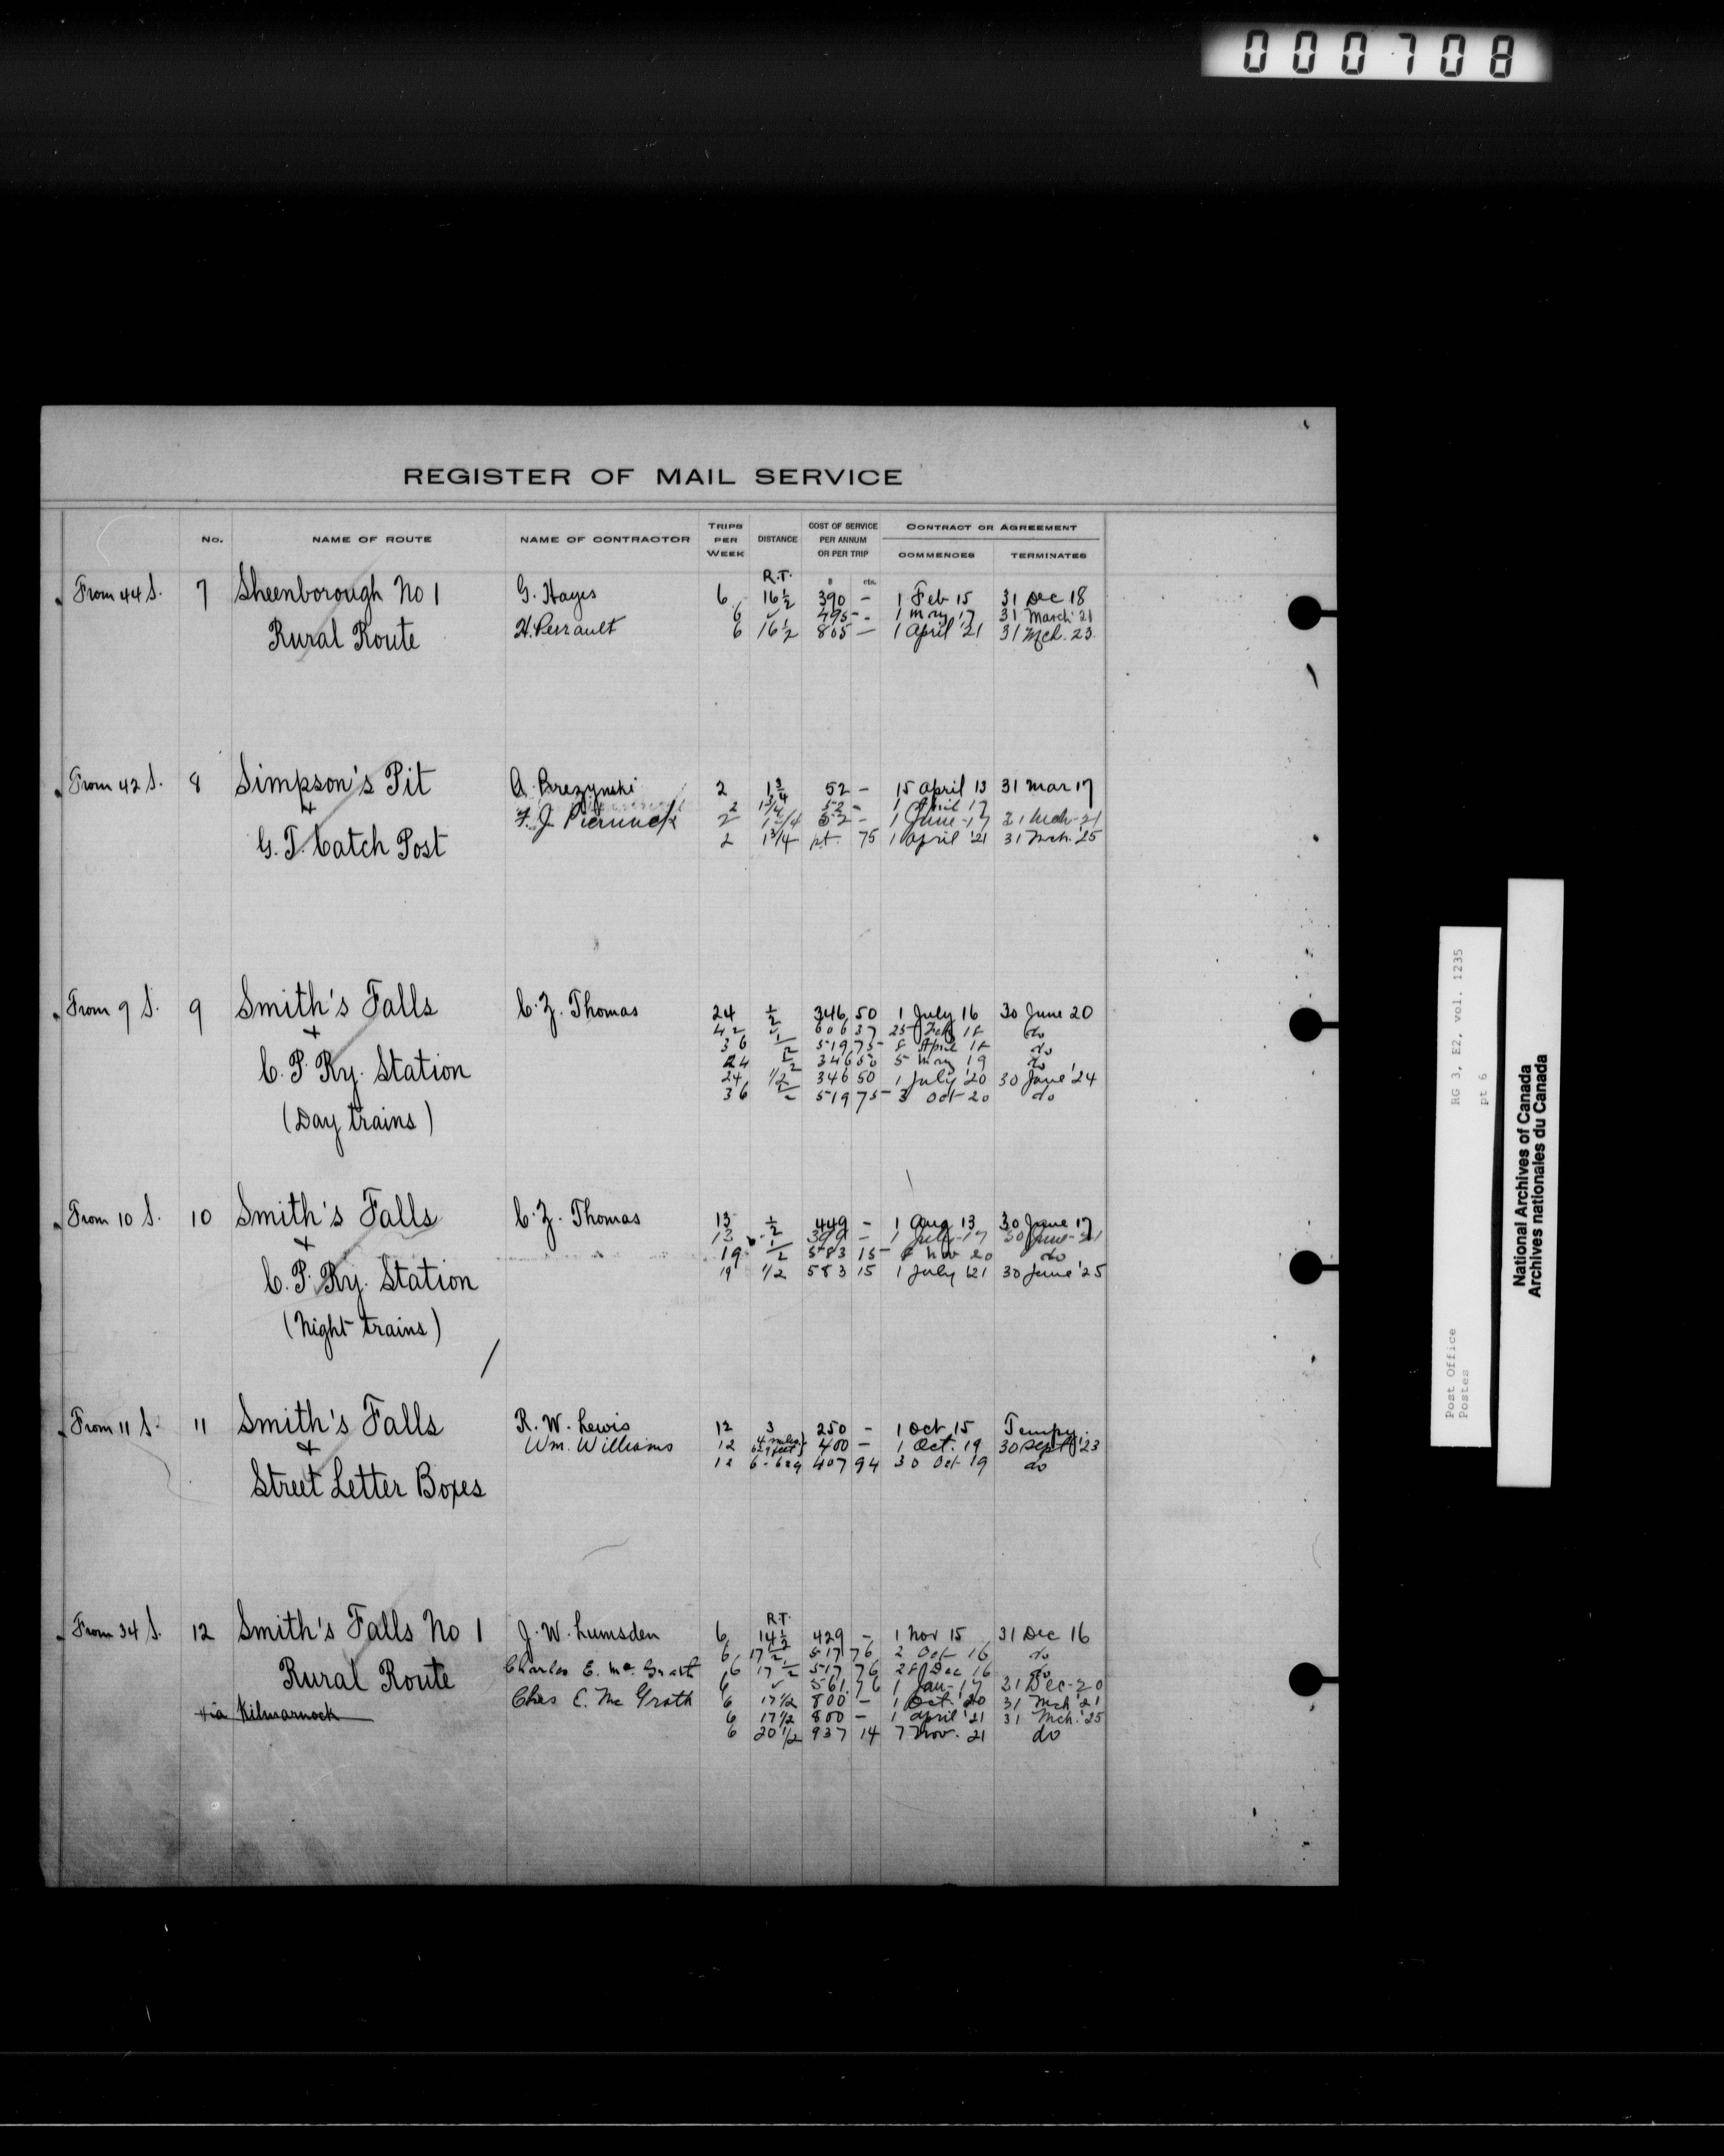 000708
REGISTER OF MAIL SERVICE
No. NAME OF ROUTE NAME OF CONTRACTOR TRIPS PER WEEK DISTANCE COST OF SERVICE PER ANNUM OR PER TRIP CONTRACT OR AGREEMENT COMMENCES TERMINATES
R.T. $ cts.
From 44 S. 7 Sheenborough No 1 G. Hayes 6 16 1/2 390 - 1 Feb 15 31 Dec 18
6 ✓ 495 - 1 May 17 31 March '21
Rural Route H. Perrault 6 16 1/2 805 - 1 April '21 31 Mch. 23.
From 42 S. 8 Simpson's Pit A. Brezynski 2 1 3/4 52 - 15 April 13 31 Mar 17
2 1 3/4 52 - 1 April 17
+ F. J. 2 1 3/4 52 - 1 June -17 31 Mch -21
G. T. Catch Post 2 1 3/4 pt. 75 1 April '21 31 Mch. '25
From 9 S. 9 Smith's Falls C. Z. Thomas 24 1/2 346 50 1 July 16 30 June 20
+ 42 ✓ 606 37 25 Feb 18 do
36 1/2 519 75 8 April 18 do
C. P. Ry. Station 24 1/2 346 50 5 May 19 do
24 1/2 346 50 1 July '20 30 June '24
36 1/2 519 75 3 Oct 20 do
(Day trains)
From 10 S. 10 Smith's Falls C. Z. Thomas 13 1/2 449 - 1 Aug 13 30 June 17
+ 13 399 - 1 July -17 30 June -21
19 1/2 583 15 8 Nov 20 do
C. P. Ry. Station 19 1/2 583 15 1 July '21 30 June '25
(Night trains)
From 11 S. 11 Smith's Falls R. W. Lewis 12 3 250 - 1 Oct 15 Tempy.
+ Wm. Williams 12 4 miles 629 feet } 400 - 1 Oct. 19 30 Sept '23
12 6-629 407 94 30 Oct 19 do
Street Letter Boxes
R.T.
From 34 S. 12 Smith's Falls No 1 J. W. Lumsden 6 14 1/2 429 - 1 Nov 15 31 Dec 16
6 17 1/2 517 76 2 Oct 16 do
Rural Route Charles E. McGrath 6 17 1/2 517 76 28 Dec 16 do
6 ✓ 561 76 1 Jan -17 31 Dec -20
Chas E. McGrath 6 17 1/2 800 - 1 Oct '20 31 Mch '21
via Kilmarnock 6 17 1/2 800 - 1 April '21 31 Mch. '25
6 20 1/2 937 14 7 Nov. 21 do
Post Office
Postes
RG 3, E2, vol. 1235
pt 6
National Archives of Canada
Archives nationales du Canada